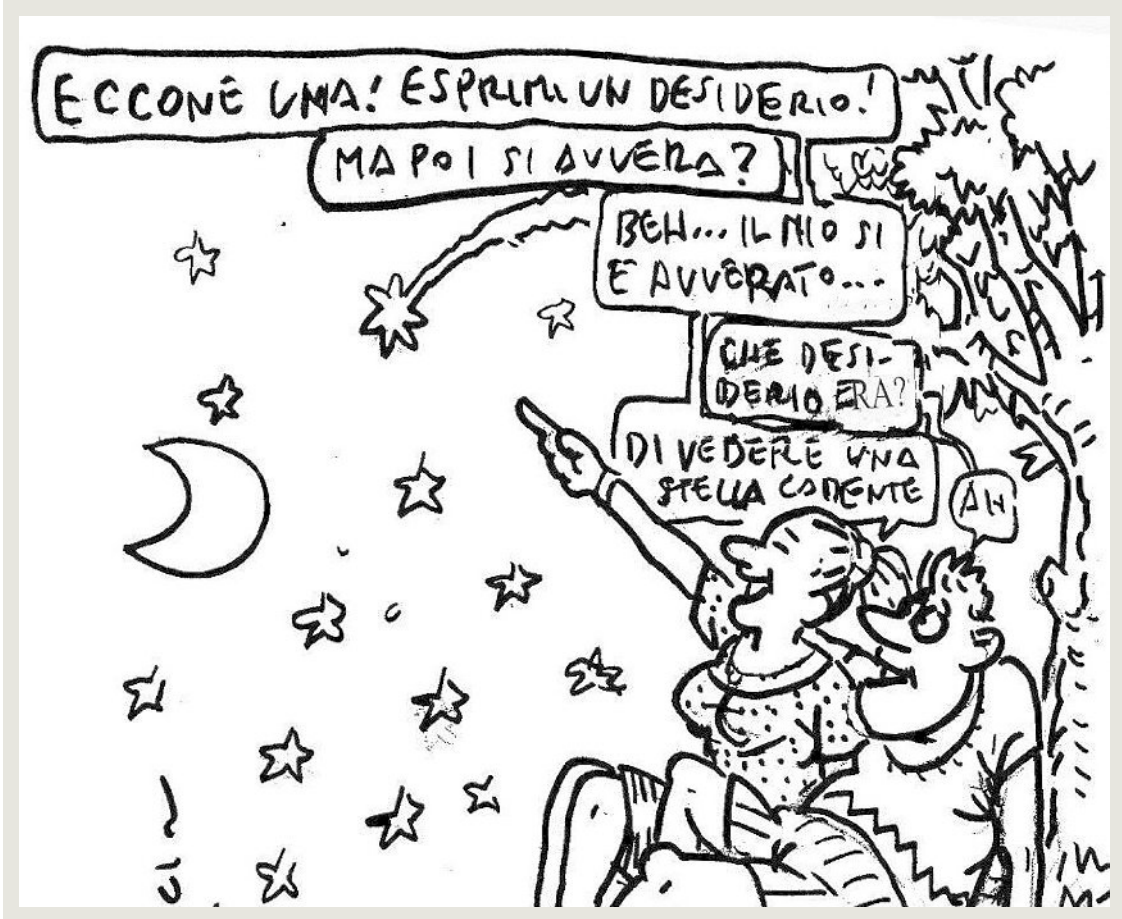 ECCONE UNA! ESPRIMI UN DESIDERIO!
MA POI SI AVVERA?
BEH... IL MIO SI
E AVVERATO...
CHE DESI-
DERIO ERA?
DI VEDERE UNA
STELLA CADENTE
AH